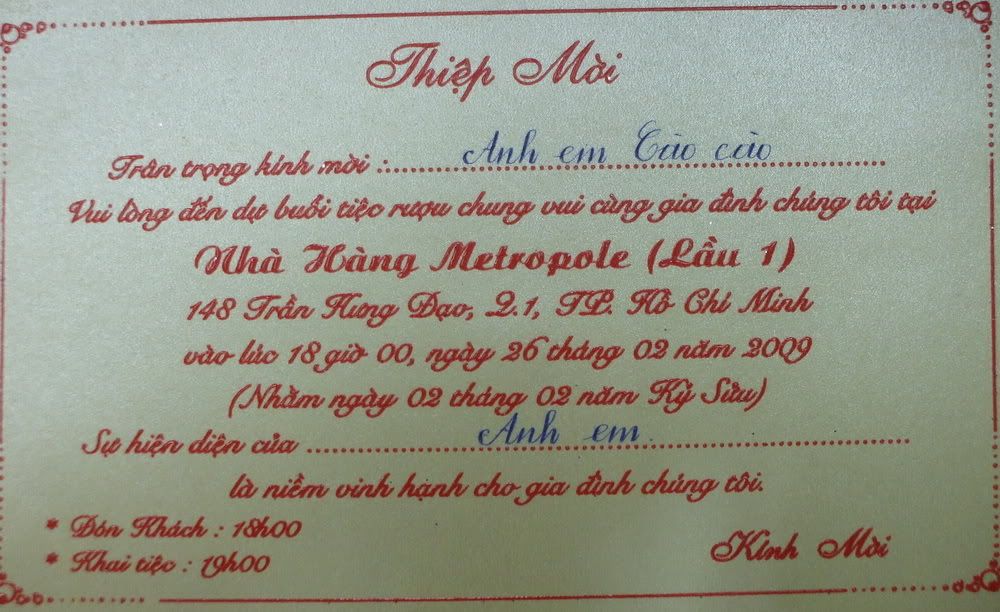 Thiệp Mời
Trân trọng kính mời : Anh em Cào cào
Vui lòng đến dự buổi tiệc rượu chung vui cùng gia đình chúng tôi tại
Nhà Hàng Metropole (Lầu 1)
148 Trần Hưng Đạo, Q.1, TP. Hồ Chí Minh
vào lúc 18 giờ 00, ngày 26 tháng 02 năm 2009
(Nhằm ngày 02 tháng 02 năm Kỷ Sửu)
Sự hiện diện của Anh em
là niềm vinh hạnh cho gia đình chúng tôi.
* Đón Khách : 18h00
* Khai tiệc : 19h00
Kính Mời